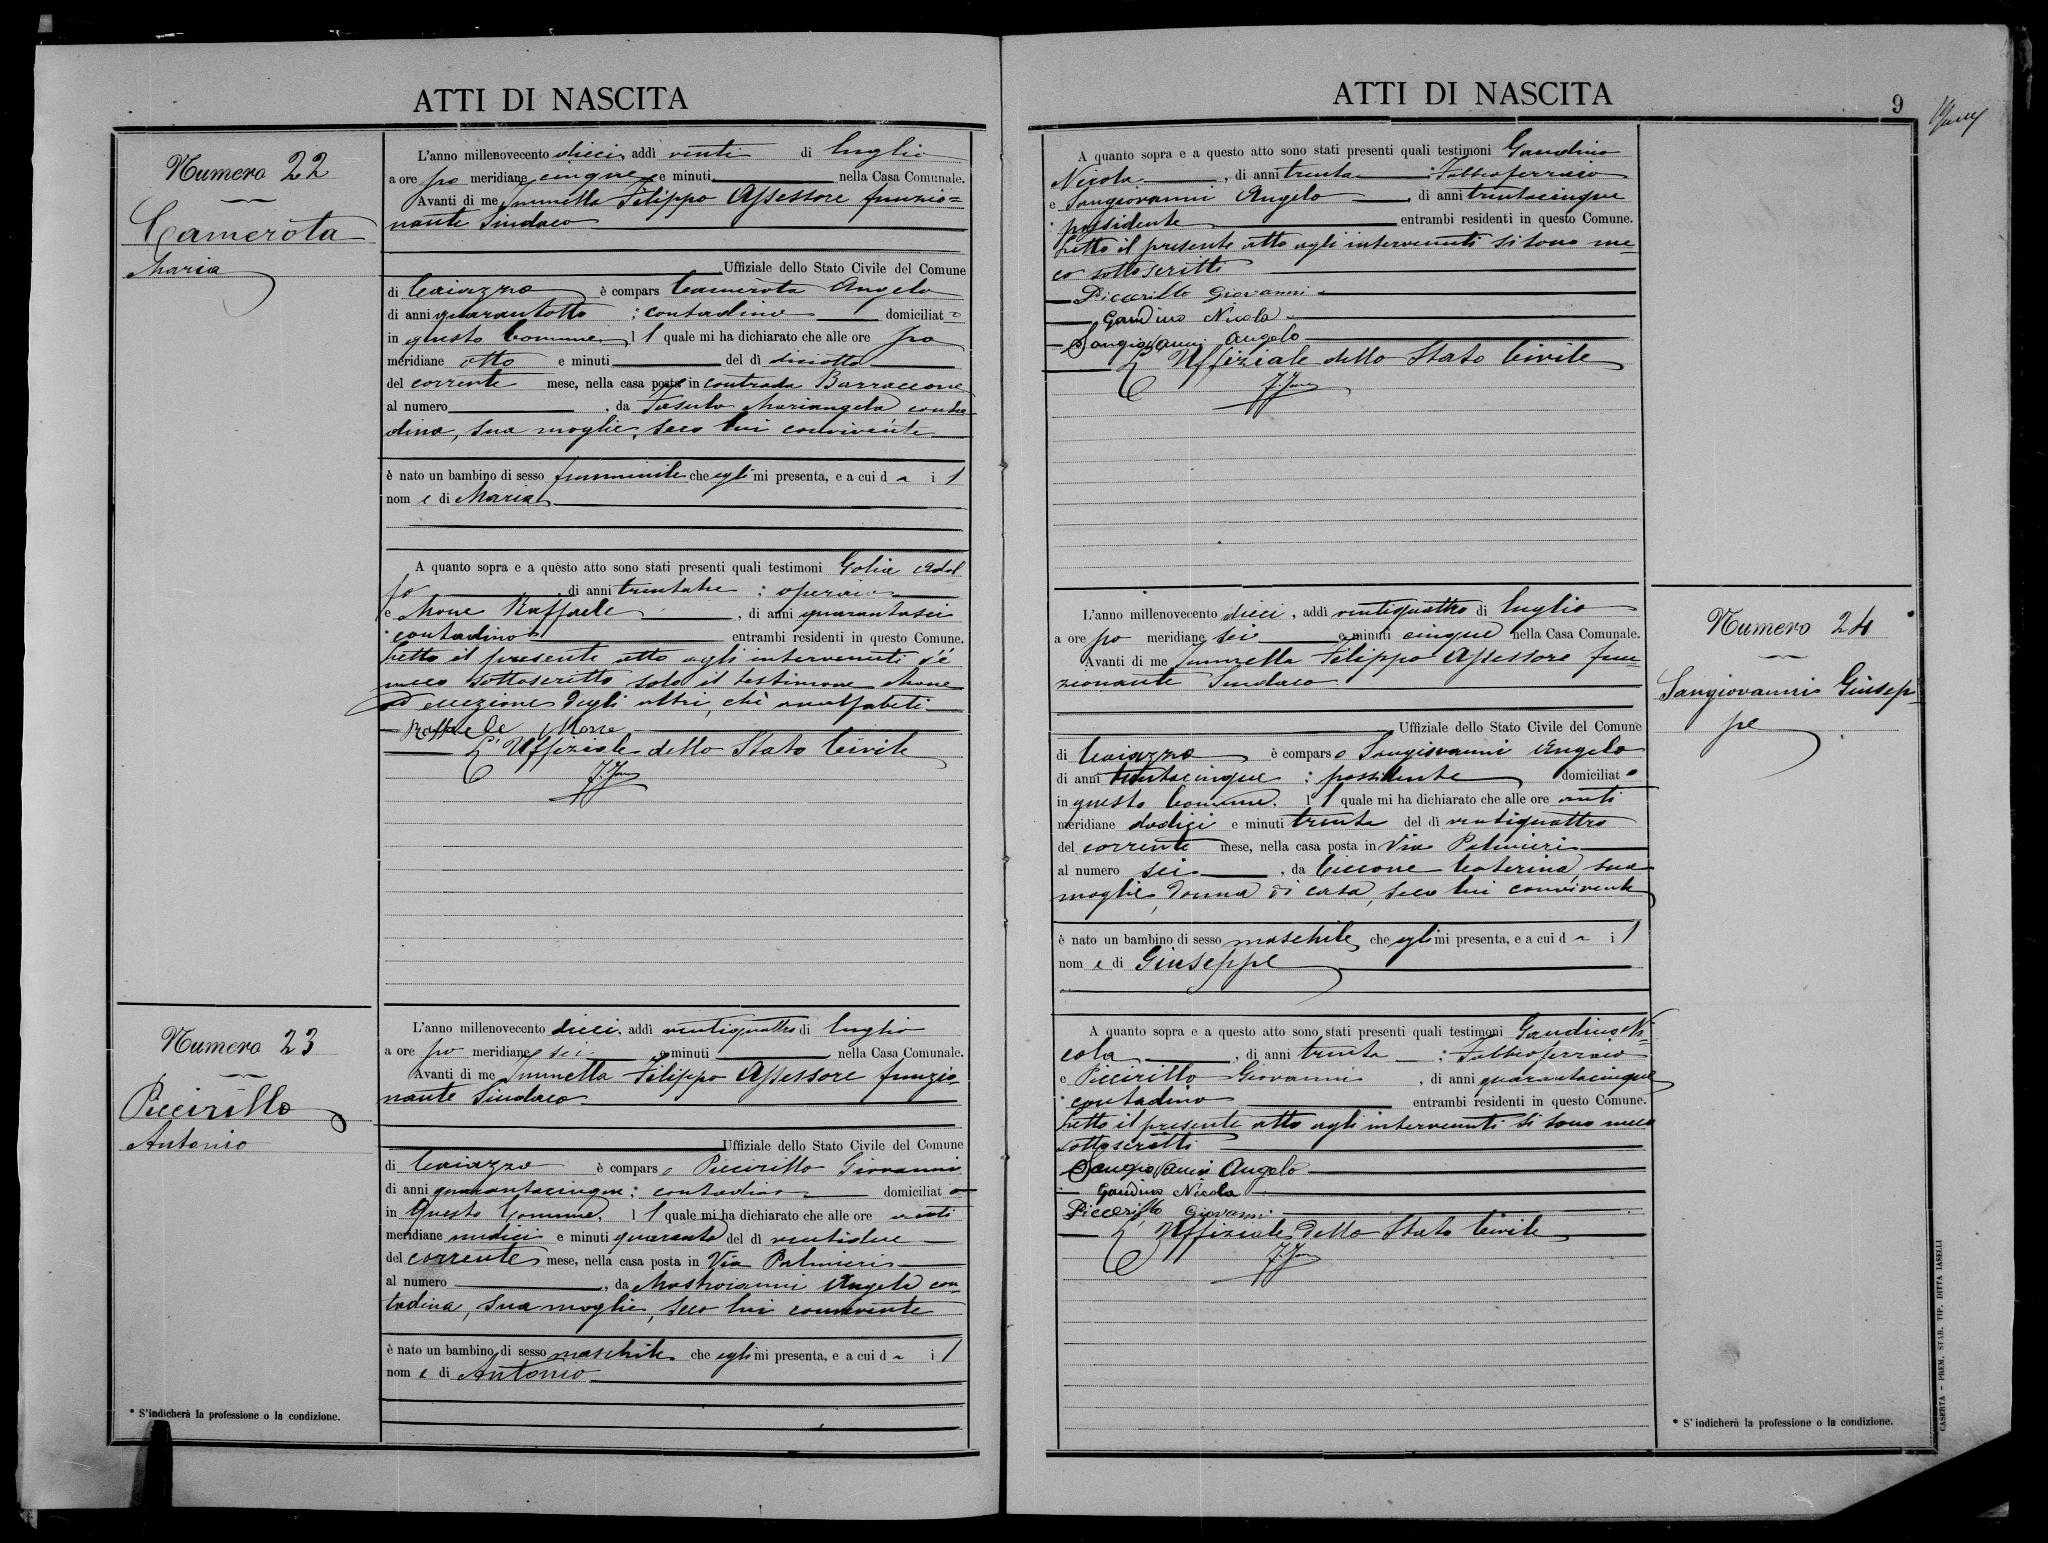 ATTI DI NASCITA
Numero 22
Camerota
Maria
L'anno millenovecento dieci, addì venti di luglio
a ore po meridiane cinque e minuti nella Casa Comunale.
Avanti di me Filippo Assessore funzio=
nante Sindaco
Uffiziale dello Stato Civile del Comune
di Caiazzo è compars Camerota Angelo
di anni quarantotto ; contadino domiciliat o
in questo Comune, l l quale mi ha dichiarato che alle ore po
meridiane otto e minuti del dì diciotto
del corrente mese, nella casa posta in contrada Barraccone
al numero , da Fasulo Mariangela conta
dina, sua moglie, seco lui convivente
è nato un bambino di sesso femminile che egli mi presenta, e a cui d a i l
nom e di Maria
A quanto sopra e a questo atto sono stati presenti quali testimoni Golia Adol
fo , di anni trentatre ; operaio
e Mone Raffaele , di anni quarantasei
; contadino entrambi residenti in questo Comune.
Letto il presente atto agli intervenuti s'è
meco sottoscritto solo il testimone Mone
ad eccezione degli altri, chè analfabeti
Raffaele Mone
L'Uffiziale dello Stato Civile
Numero 23
Piccirillo
Antonio
L'anno millenovecento dieci, addì ventiquattro di luglio
a ore po meridiane sei e minuti nella Casa Comunale.
Avanti di me Filippo Assessore funzio
nante Sindaco
Uffiziale dello Stato Civile del Comune
di Caiazzo è compars o Piccirillo Giovanni
di anni quarantacinque ; contadino domiciliat o
in questo Comune, l l quale mi ha dichiarato che alle ore anti
meridiane undici e minuti quaranta del dì ventidue
del corrente mese, nella casa posta in Via Palmieri
al numero , da Mastroianni Angela con
tadina, sua moglie, seco lui convivente
è nato un bambino di sesso maschile che egli mi presenta, e a cui d a i l
nom e di Antonio
* S'indicherà la professione o la condizione.
ATTI DI NASCITA
9
A quanto sopra e a questo atto sono stati presenti quali testimoni Gaudino
Nicola , di anni trenta ; Fabbroferraio
e Sangiovanni Angelo , di anni trentacinque
; possidente entrambi residenti in questo Comune.
Letto il presente atto agli intervenuti si sono me-
co sottoscritti
Piccerillo Giovanni
Gaudino Nicola
Sangiovanni Angelo
L'Uffiziale dello Stato Civile
Numero 24
Sangiovanni Giusep-
pe
L'anno millenovecento dieci, addì ventiquattro di luglio
a ore po meridiane sei e minuti cinque nella Casa Comunale.
Avanti di me Filippo Assessore fun-
zionante Sindaco
Uffiziale dello Stato Civile del Comune
di Caiazzo è compars o Sangiovanni Angelo
di anni trentacinque ; possidente domiciliat o
in questo Comune, l l quale mi ha dichiarato che alle ore anti
meridiane dodici e minuti trenta del dì ventiquattro
del corrente mese, nella casa posta in Via Palmieri
al numero sei , da Ciccone Caterina, sua
moglie, donna di casa, seco lui convivente
è nato un bambino di sesso maschile che egli mi presenta, e a cui d a i l
nom e di Giuseppe
A quanto sopra e a questo atto sono stati presenti quali testimoni Gaudino Ni
cola , di anni trenta ; Fabbroferraio
e Piccirillo Giovanni , di anni quarantacinque
; contadino entrambi residenti in questo Comune.
Letto il presente atto agli intervenuti si sono meco
sottoscritti
Sangiovanni Angelo
Gaudino Nicola
Piccerillo Giovanni
L'Uffiziale dello Stato Civile
* S'indicherà la professione o la condizione.
CASERTA - PREM. STAB. TIP. DITTA IASELLI